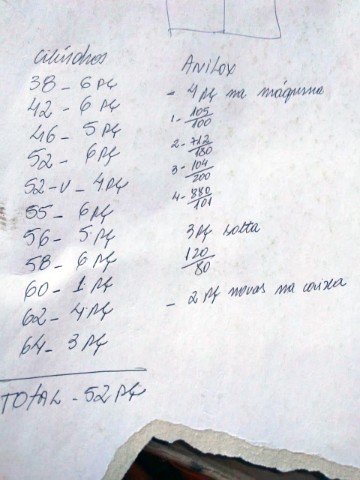 Cilindros
38 - 6 Pç
42 - 6 Pç
46 - 5 Pç
52 - 6 Pç
52-U - 4 Pç
55 - 6 Pç
56 - 5 Pç
58 - 6 Pç
60 - 1 Pç
62 - 4 Pç
64 - 3 Pç
TOTAL - 52 Pç
Anilox
- 4 Pç na máquina
1 - 105/100
2 - 712/180
3 - 104/200
4 - 880/101
3 Pç solta
120/80
- 2 Pç novas na caixa